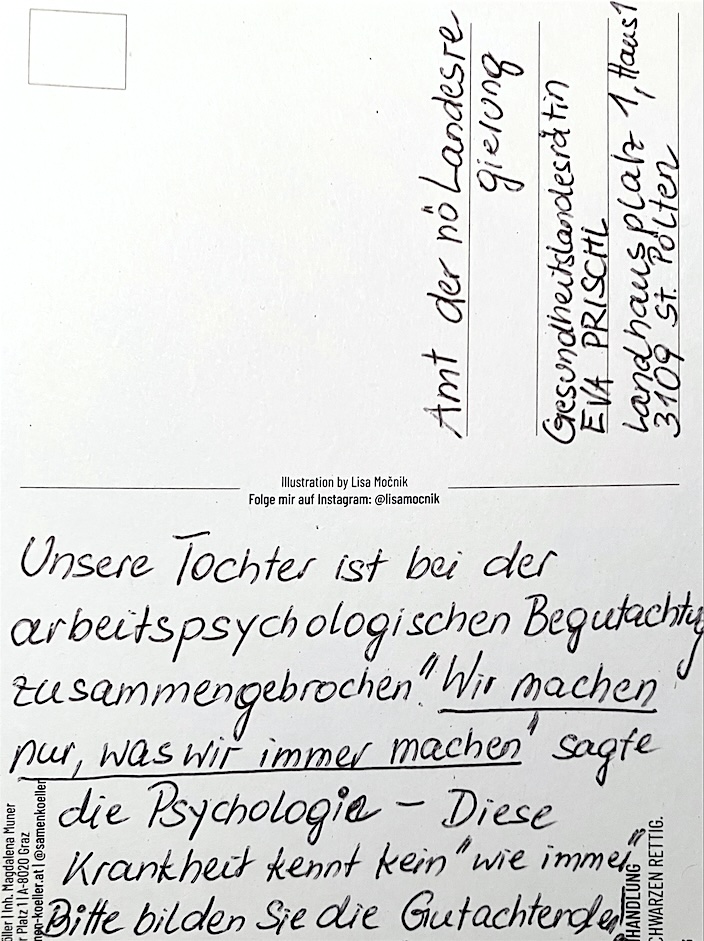 Amt der nö Landesre
gierung
Gesundheitslandesrätin
EVA PRISCHL
Landhausplatz 1, Haus 1
3109 St. Pölten
Illustration by Lisa Močnik
Folge mir auf Instagram: @lisamocnik
Unsere Tochter ist bei der
arbeitspsychologischen Begutachtg
zusammengebrochen. "Wir machen
nur, was wir immer machen" sagte
die Psychologie – Diese
Krankheit kennt kein "wie immer"
Bitte bilden Sie die Gutachtenden
öller | Inh. Magdalena Muner
r Platz 1 | A-8020 Graz
en-koeller.at | @samenkoeller
HANDLUNG
CHWARZEN RETTIG.